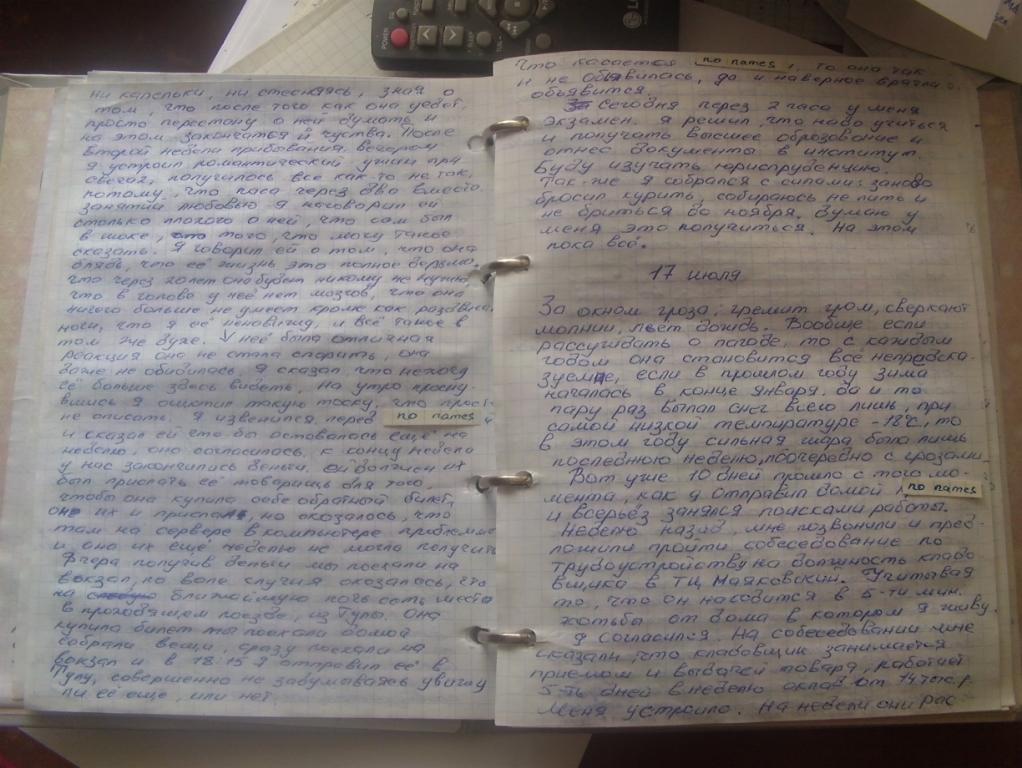 ни капельки, ни стесняясь, зная о
том что после того как она уедет,
просто перестану о ней думать и
на этом закончатся й чуства. После
второй недели прибования. вечером
я устроил романтический ужин при
свечах, получилось все как-то не так,
потому, что часа через два вместо
занятий любовью я наговорил ей
столько плохого о ней, что сам был
в шоке, от того, что могу такое
сказать. Я говорил ей о том, что она
блядь, что её жизнь это полное дерьмо,
что через 20 лет она будет никому не нужна,
что в голове у неё нет мозгов, что она
ничего больше не умеет кроме как раздвига
ноги, что я её ненавижу, и всё такое в
том же духе. У неё была отличная
реакция она не стала спорить, она
даже не обиделась. Я сказал что не хочу
её больше здесь видеть. На утро просну-
вшись я ощутил такую тоску, что прост
не описать. Я извенился перед no names
и сказал ей что бы оставалась ещё на
неделю, она согласилась. к концу недели
у нас закончились деньги. ей должен их
был прислать её товарищь для того,
чтобы она купила себе обратный билет,
он их и прислал, но оказалось, что
там на сервере в компьютере проблемы
и она их еще неделю не могла получить
Вчера получив деньги мы поехали на
вокзал, по воле случия оказалось, что
на ближайшую ночь есть места
в проходящем поезде, из Тулы. Она
купила билет мы поехали домой
собрали вещи, сразу поехали на
вокзал и в 18:15 я отправил её в
Тулу, совершенно не задумываясь увижу
ли её еще, или нет.
что касается no names, то она так
и не объявилась, да и наверное врятли
объявится.
Сегодня через 2 часа у меня
экзамен. я решил что надо учиться
и получать высшее оброзование и
отнес документы в институт.
Буду изучать юриспруденцию.
Так-же я собрался с силами: заново
бросил курить, собираюсь не пить и
не бриться до ноября. Думаю у
меня это получиться. На этом
пока всё.
17 июля
За окном гроза, гремит гром, сверкают
молнии, льет дождь. Вообще если
рассуждать о пагоде, то с каждым
годом она становится всё непредска-
зуемие, если в прошлом году зима
началась в конце января. да и то
пару раз выпал снег всего лишь, при
самой низкой температуре -18°с, то
в этом году сильная жара была лишь
последнюю неделю, поочередно с грозами.
Вот уже 10 дней прошло с того мо-
мента, как я отправил домой no names
и всерьёз занялся поисками работы.
Неделю назад мне позвонили и пред-
ложили пройти собеседование по
трудоустройству на должность кладо
вщика в ТЦ Маяковский. Учитывая
то, что он находится в 5-ти мин.
хотьбы от дома в котором я живу.
я согласился. На собеседовании мне
сказали, что кладовщик занимается
приемом и выдачей товара, работает
5-ть дней в неделю оклад от 14 тыс.р
Меня устроило. На недели они рас
POWER
LG